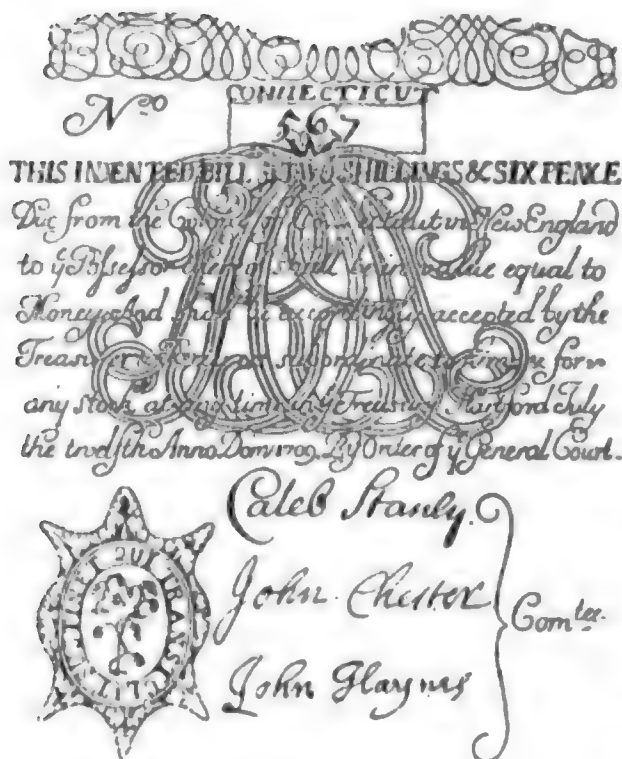 CONNECTICUT
Nº 567
THIS INDENTED BILL TWO SHILLINGS & SIX PENCE
Due from the in New England
to yͤ Possessor shall be in value equal to
Money And shall be accordingly accepted by the
Treasurer for
any Stock at any time in yͤ Treasury Hartford July
the twelfth Anno Dom: 1709. By Order of yͤ General Court.
Caleb Stanly.
John Chester
John Haynes
Comᵗᵉᵉ·
QUI TRANS